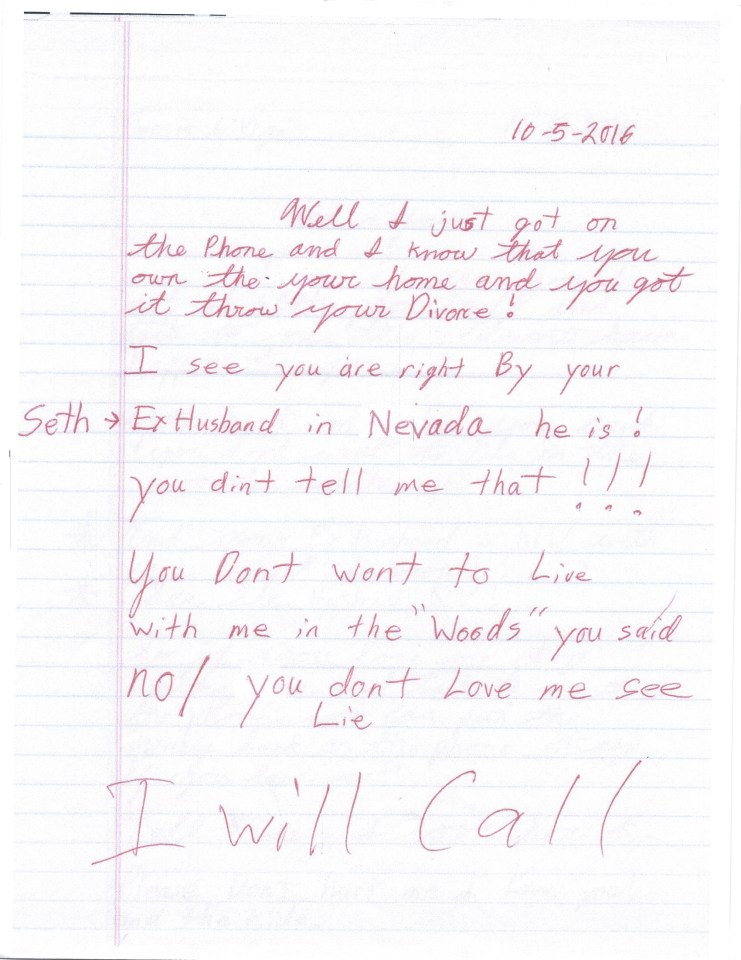 10-5-2016
Well I just got on
the Phone and I know that you
own the your home and you got
it throw your Divorce!
I see you are right By your
Seth → ExHusband in Nevada he is!
you dint tell me that !!!
You Dont wont to Live
with me in the "Woods" you said
no/ you don't Love me see
Lie
I will Call